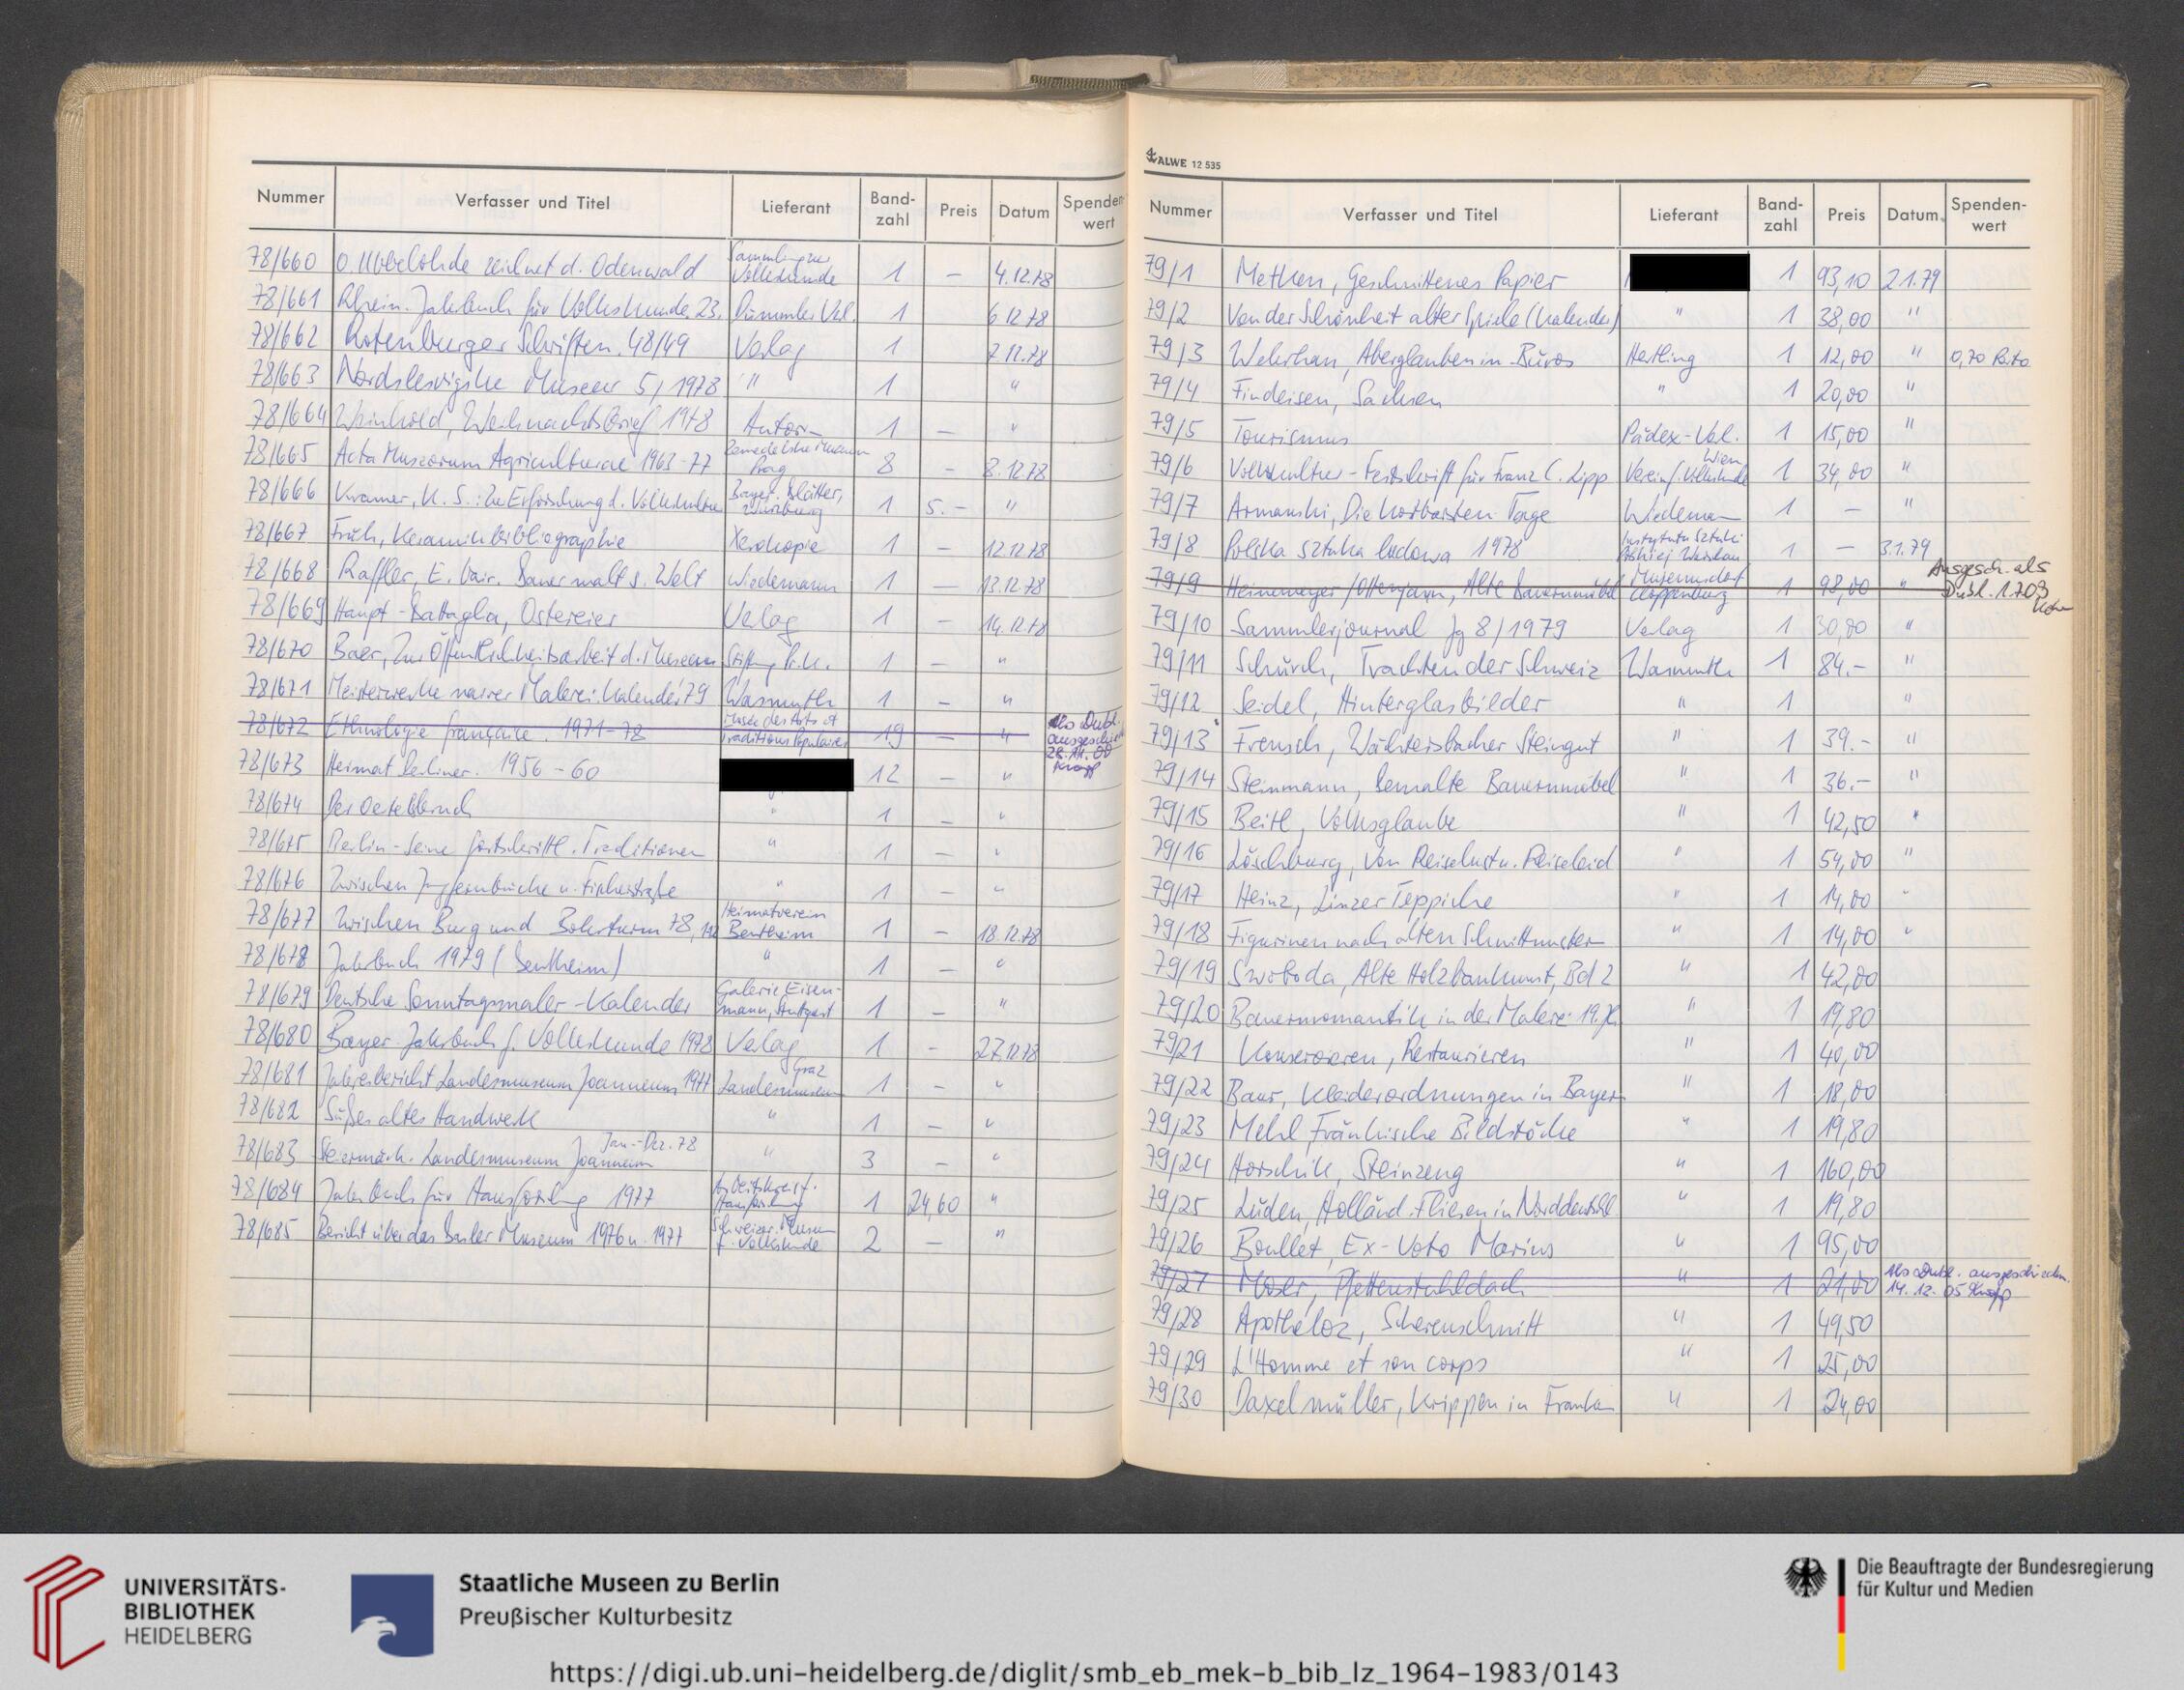 Nummer Verfasser und Titel Lieferant Band-zahl Preis Datum Spenden-wert
78/660 O. Ubbelohde zeichnet d. Odenwald Sammlung zur Volkskunde 1 – 4.12.78
78/661 Rhein. Jahrbuch für Volkskunde 23. Dümmler Vel. 1 6.12.78
78/662 Rotenburger Schriften. 48/49 Verlag 1 7.12.78
78/663 Museer 5, 1978 " 1 "
78/664 Weinhold, Weihnachtsbrief 1978 Autor 1 – "
78/665 Acta Museorum Agriculturae 1963-77 Prag 8 – 8.12.78
78/666 Kramer, K. S.: Zur Erforschung d. Volkskultur Bayer. Blätter, Würzburg 1 5.- "
78/667 Früh, Keramikbibliographie Xerokopie 1 – 12.12.78
78/668 Raffler, E. bair. Bauer malt s. Welt Wiedemann 1 – 13.12.78
78/669 Haupt-Battaglia, Ostereier Verlag 1 – 14.12.78
78/670 Baer, Zur Öffentlichkeitsarbeit d. Museen Stiftung Pr.K. 1 – "
78/671 Meisterwerke naiver Malerei: Kalender '79 Wasmuth 1 – "
78/672 Ethnologie française. 1971-78 Musée des Arts et Traditions Populaires 19 – " Als Dubl. ausgeschied. 28.11.00 Knopf
78/673 Heimat Berliner. 1956-60 12 – "
78/674 1 – "
78/675 Berlin-Seine fortschrittl. Traditionen " 1 – "
78/676 Zwischen Jungfernbrücke u. Fischerstraße " 1 – "
78/677 Zwischen Burg und Bohrturm 78, Heimatverein Bentheim 1 – 18.12.78
78/678 Jahrbuch 1979 (Bentheim) " 1 – "
78/679 Deutsche Sonntagsmaler-Kalender Galerie Eisenmann, Stuttgart 1 – "
78/680 Bayer. Jahrbuch f. Volkskunde 1978 Verlag 1 – 27.12.78
78/681 Jahresbericht Landesmuseum Joanneum 1977 Graz Landesmuseum 1 – "
78/682 Süßes altes Handwerk " 1 – "
78/683 Steiermärk. Landesmuseum Joanneum Jan.-Dez. 78 " 3 – "
78/684 Jahrbuch für Hausforschung 1977 Arbeitskreis f. Hausforschung 1 24,60 "
78/685 Bericht über das Basler Museum 1976 u. 1977 Schweizer. Museum f. Volkskunde 2 – "
ALWE 12 535
Nummer Verfasser und Titel Lieferant Band-zahl Preis Datum Spenden-wert
79/1 Metken, Geschnittenes Papier 1 93,10 2.1.79
79/2 Von der Schönheit alter Spiele (Kalender) " 1 38,00 "
79/3 Wehrhan, Aberglauben in Büros Hertling 1 12,00 " 0,70 Porto
79/4 Findeisen, Sachsen " 1 20,00 "
79/5 Tourismus Pädex-Vel. 1 15,00 "
79/6 Volkskultur-Festschrift für Franz C. Lipp Verein f. Volkskunde Wien 1 34,00 "
79/7 Armanski, Die kostbarsten Tage Wiedemann 1 – "
79/8 Polska sztuka ludowa 1978 Instytutu Sztuki 1 – 3.1.79
79/9 Heinemeyer/Ottenjann, Alte Bauernmöbel Museumsdorf Cloppenburg 1 98,00 " Ausgesch. als Dubl. 1.7.03
79/10 Sammlerjournal Jg 8/1979 Verlag 1 30,00 "
79/11 Schürch, Trachten der Schweiz Wasmuth 1 84.- "
79/12 Seidel, Hinterglasbilder " 1 "
79/13 Frensch, Wächtersbacher Steingut " 1 39.- "
79/14 Steinmann, Bemalte Bauernmöbel " 1 36.- "
79/15 Beitl, Volksglaube " 1 42,50 "
79/16 Löschburg, Von Reiselust u. Reiseleid " 1 54,00 "
79/17 Heinz, Linzer Teppiche " 1 14,00 "
79/18 Figurinen nach alten Schnittmustern " 1 14,00 "
79/19 Swoboda, Alte Holzbaukunst, Bd 2 " 1 42,00
79/20 Bauernromantik in der Malerei 19. Jh. " 1 19,80
79/21 Konservieren, Restaurieren " 1 40,00
79/22 Baur, Kleiderordnungen in Bayern " 1 18,00
79/23 Mehl Fränkische Bildstöcke " 1 19,80
79/24 Horschik, Steinzeug " 1 160,00
79/25 Lüden, Holländ. Fliesen in Norddeutschl. " 1 19,80
79/26 Boullet, Ex-Voto Marins " 1 95,00
79/27 Moser, Pfettenstuhldach " 1 21,00 Als Dubl. ausgeschieden. 14.12.05 Knopf
79/28 Apotheloz, Scherenschnitt " 1 49,50
79/29 L'Homme et son corps " 1 25,00
79/30 Daxelmüller, Krippen in Franken " 1 24,00
UNIVERSITÄTS-
BIBLIOTHEK
HEIDELBERG
Staatliche Museen zu Berlin
Preußischer Kulturbesitz
Die Beauftragte der Bundesregierung
für Kultur und Medien
https://digi.ub.uni-heidelberg.de/diglit/smb_eb_mek-b_bib_lz_1964-1983/0143